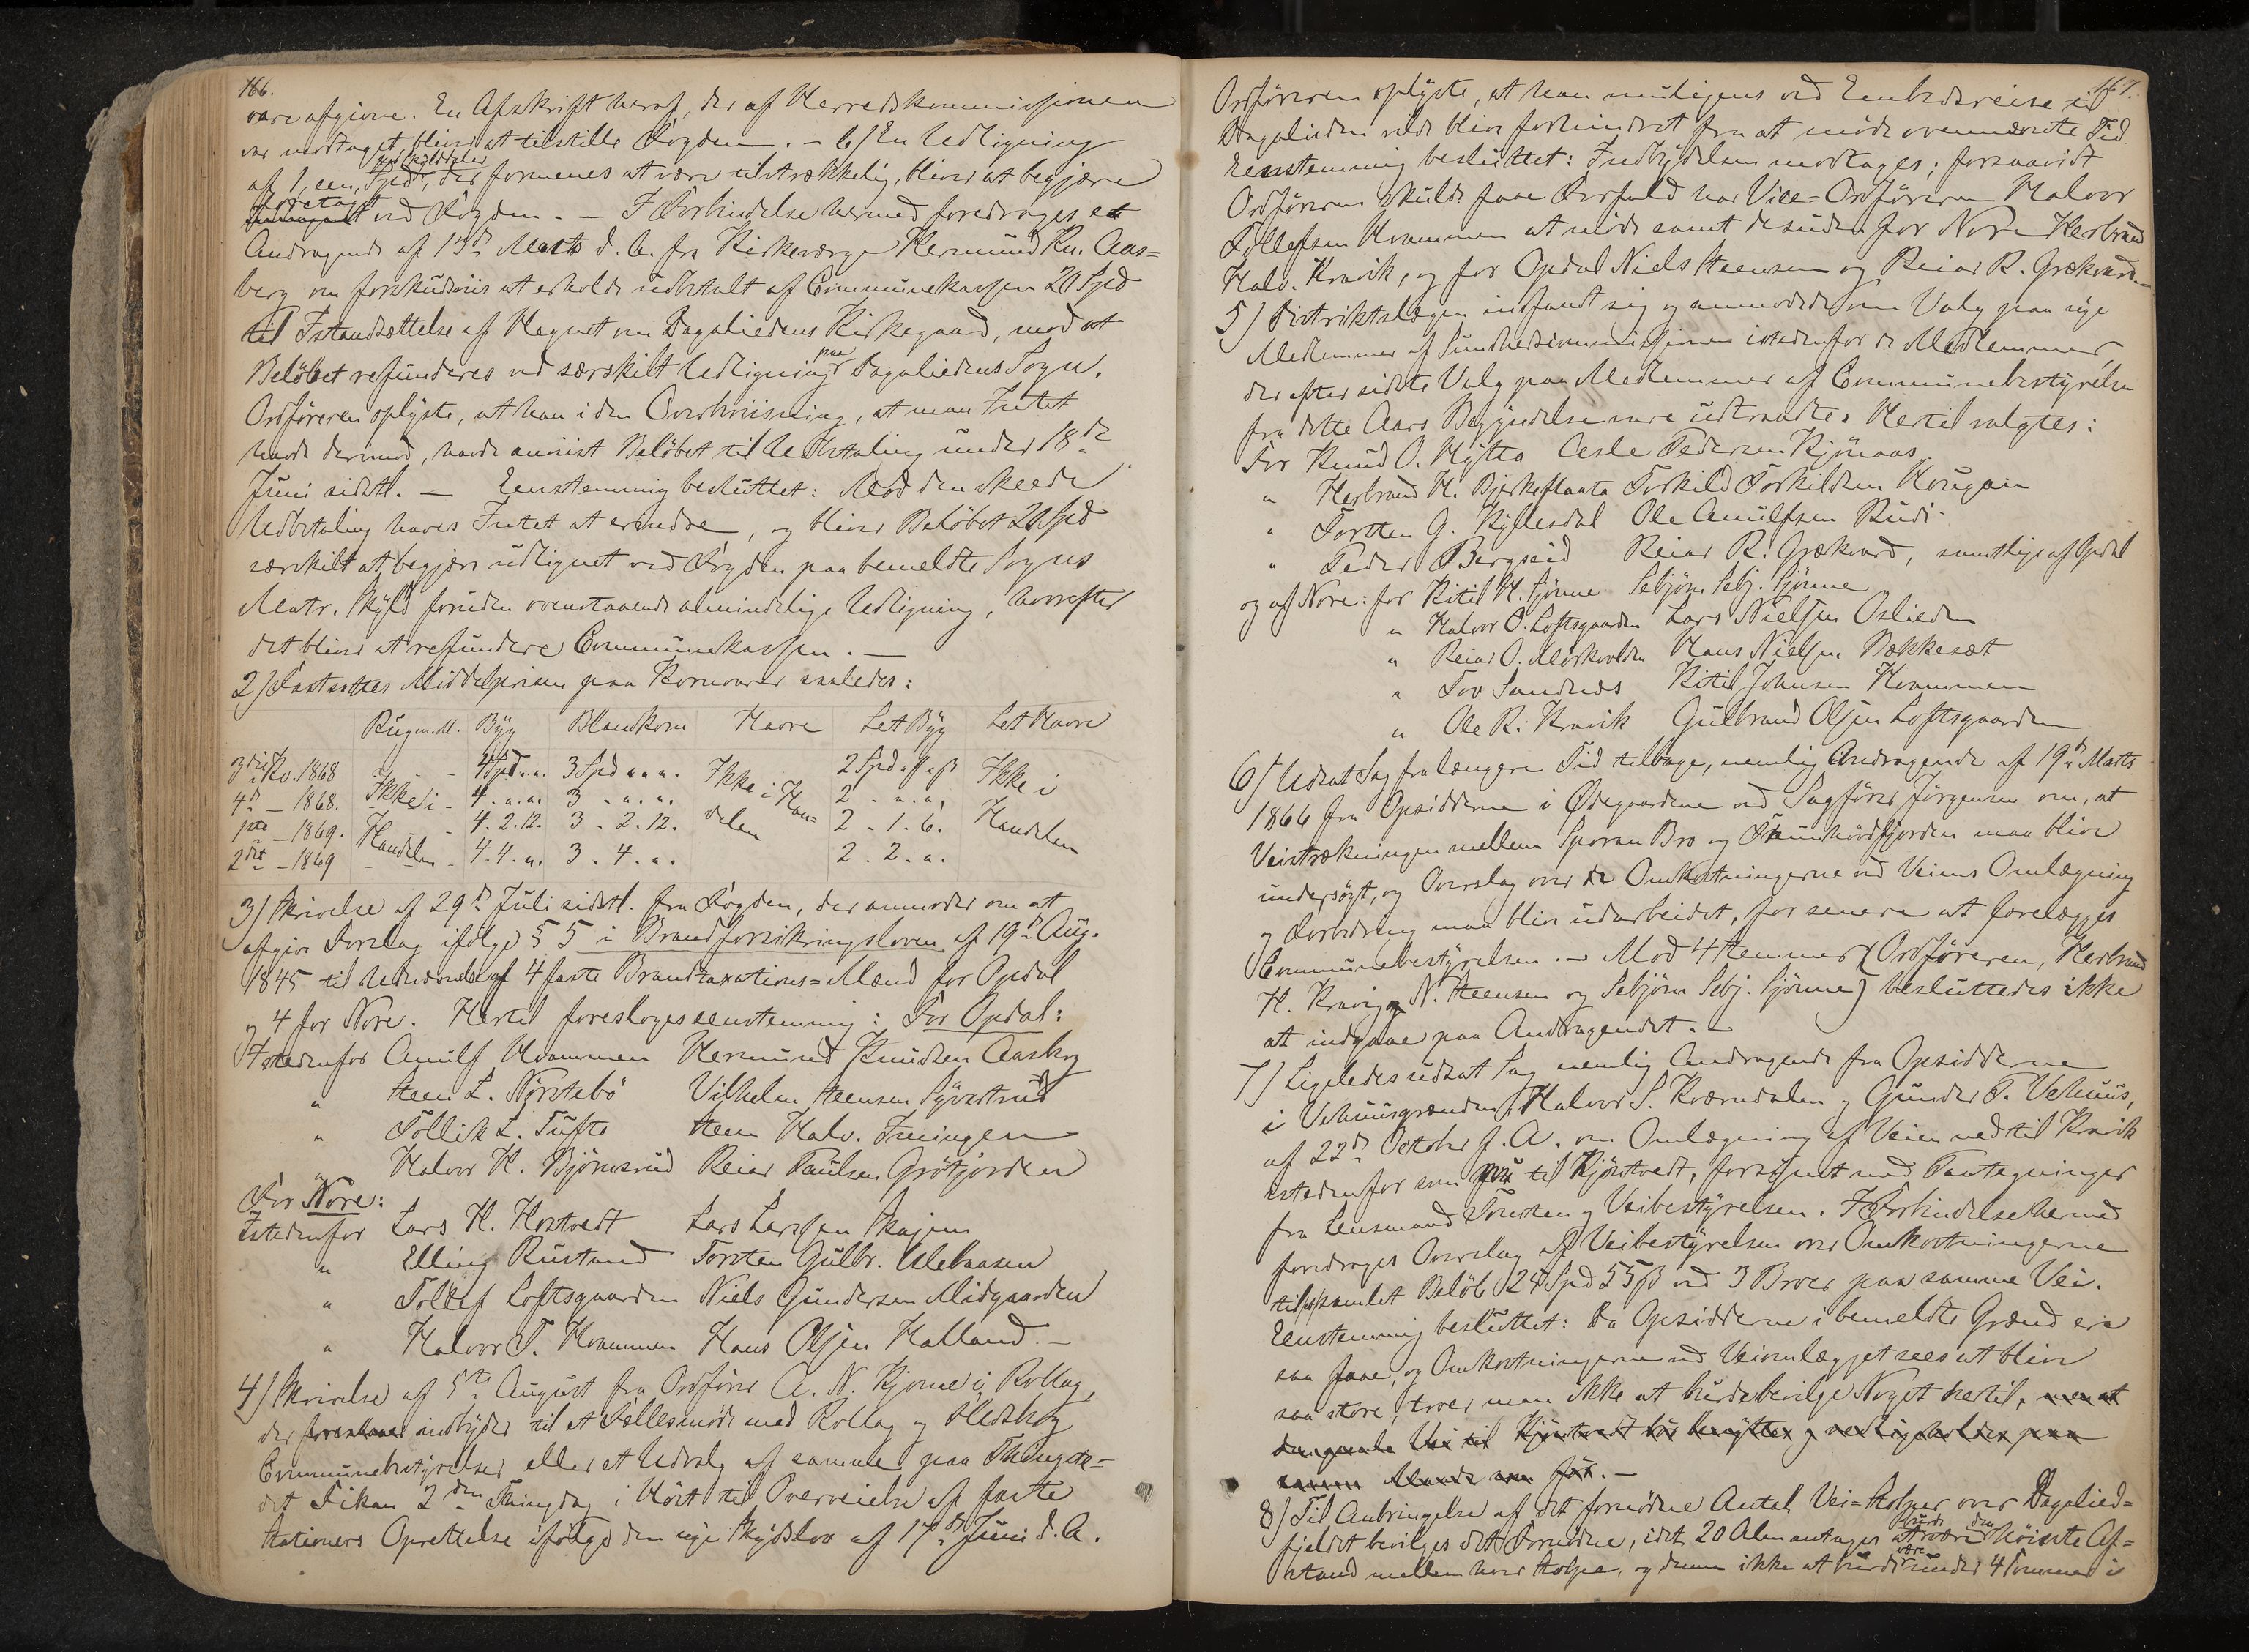 166.
være afgivne. En Afskrift heraf, der af Herredskommissionen
var modtaget, bliver at tilstille Fogden. – 6/ En Udligning
pr Skylddaler
af 1, een, Spd, der formenes at være tilstrækkelig, bliver at begjære
foretaget
ved Fogden. – I Forbindelse hermed foredroges et
Andragende af 13de Marts d. A. fra Kirkeværge Hermund Kn. Aas=
berg om forskudsviis at erholde udbetalt af Communekassen 20 Spd
til Istandsættelse af Hegnet om Dagaliedens Kirkegaard, mod at
Beløbet refunderes ved særskilt Udligning paa Dagaliedens Sogn.
Ordføreren oplyste, at han i den Overbeviisning, at man Intet
havde derimod, havde anviist Beløbet til Udbetaling under 18de
Juni sidstl. – Eenstemmig besluttet: Mod den skeede
Udbetaling haves Intet at erindre, og bliver Beløbet 20 Spd
særskilt at begjære udlignet ved Fogden paa bemeldte Sogns
Matr. Skyld foruden ovenstaaende almindelige Udligning, hvorefter
det bliver at refundere Communekassen. –
2) Fastsattes Middelprisen paa Kornvarer saaledes:
Rugm.M. Byg Blandkorn Havre Let Byg Let Havre
3die Kv. 1868 Ikke i - 4 Spd „ „. 3 Spd „ „. Ikke i Han= 2 Spd „ „ ß Ikke i
4de – 1868. - 4. „. „. 3 . „. „. delen 2 . „. „.
1ste – 1869. Handelen - 4. 2. 12. 3 . 2. 12. 2 . 1. 6. Handelen
2det – 1869 - 4. 4. „. 3 . 4. „. 2 . 2. „.
3) Skrivelse af 29de Juli sidstl. fra Fogden, der anmoder om at
afgive Forslag ifølge § 5 i Brandforsikringsloven af 19de Aug.
1845 til Udnævnelse af 4 faste Brandtaxations=Mænd for Opdal
og 4 for Nore. Hertil foresloges eenstemmig: For Opdal:
Istedenfor Anulf Hvammen Hermund Knudsen Aasberg
„ Steen L. Nørstebö Vilhelm Steensen Syverstrud
„ Tollik L. Tufte Steen Halv. Inningen
„ Halvor H. Björnsrud Reiar Paulsen Gröfjorden
For Nore:
Istedenfor Lars H. Hostvedt Lars Larssen Skajem
„ Elling Rustand Torsten Gulbr. Ulebaasen
„ Tollef Loftsgaarden Niels Gundersen Midgaarden
„ Halvor T. Hvammen Hans Olsen Halland. –
4) Skrivelse af 5te August fra Ordfører A. N. Kjerne i Rollag,
der foreslaaer indbyder til et Fællesmöde med Rollag og Flesberg
Communebestyrelser eller et Udvalg af samme paa Thingste=
det Fikan 2den Thingdag i Höst til Overveielse af faste
Stationers Oprettelse ifølge den nye Skydslov af 17de Juni d. A.
167.
Ordføreren oplyste, at han muligens ved Embedsreise til
Dagalieden vilde blive forhindret fra at möde ovennævnte Tid
Eenstemmig besluttet: Indbydelsen modtages; forsaavidt
Ordføreren skulde faae Forfald har Vice=Ordføreren Halvor
Tollefsen Hvammen at möde samt desuden for Nore Herbrand
Halv. Kravik, og for Opdal Niels Steensen og Reiar R. Grækvard. –
5) Distriktslægen indfandt sig og anmodede om Valg paa nye
Medlemmer af Sundhedscommissionen istedenfor de Medlemmer,
der efter sidste Valg paa Medlemmer af Communebestyrelse
fra dette Aars Begyndelse vare udtraadte. Hertil valgtes:
For Knud O. Hytta Asle Pedersen Kjönaas
„ Herbrand H. Bjerkeflaata Torkild Torkildsen Hougan
„ Torsten G. Kyllesdal Ole Anulfsen Rudi
„ Peder Bergseid Reiar R. Grækvard, samtlige af Opdal
og af Nore: for Kitil H. Sjönne Sebjörn Sebj. Sjönne
„ Halvor O. Loftsgaarden Lars Nielsen Oslieden
„ Reiar O. Mörkvolden Hans Nielsen Bekkesæt
„ Tov Sandnes Kitil Johnsen Hvammen
„ Ole R. Kravik Gulbrand Olsen Loftsgaarden
6) Udsat Sag fra længere Tid tilbage, nemlig Andragende af 19de Marts
1866 fra Opsidderne i Ødegaardene ved Sagfører Jørgensen om, at
Veistrækningen mellem Sporan Bro og Thunhövdfjorden maa blive
undersøgt, og Overslag over de Omkostningerne ved Veiens Omlægning
og Forbedring maa blive udarbeidet, for senere at forelægges
Communebestyrelsen. – Mod 4 Stemmer (Ordføreren, Herbrand
H. Kravig, N. Steensen og Sebjörn Sebj. Sjönne) besluttedes ikke
at indgaae paa Andragendet. –
7) Ligeledes udsat Sag nemlig Andragende fra Opsidderne
i Vehuusgrænden, Halvor S. Kværndalen og Gunder T. Vehuus,
af 22de October f. A. om Omlægning af Veien ned til Kravik
istedenfor som nu til Kjöntvedt, forsynet med Paategninger
fra Lensmand Toresten og Veibestyrelsen. I Forbindelse hermed
foredroges Overslag af Veibestyrelsen over Omkostningerne
til samlet Beløb 24 Spd 55 ß ved 3 Broer paa samme Vei.
Eenstemmig besluttet: Da Opsidderne i bemeldte Grænd ere
saa faae, og Omkostningerne ved Veiomlægget sees at blive
saa store, troer man ikke at burde bevilge Noget hertil, men at
den gamle Vei til Kjöntvedt bör benyttes og vedligeholdes paa
samme Maade som för. –
8) Til Anbringelse af det fornödne Antal Vei=Stolper over Dagalied=
fjeldet bevilges det Fornödne, idet 20 Alen antages at burde være den höieste Af=
stand mellem hver Stolpe, og denne ikke at burde være under 4 Tommer i